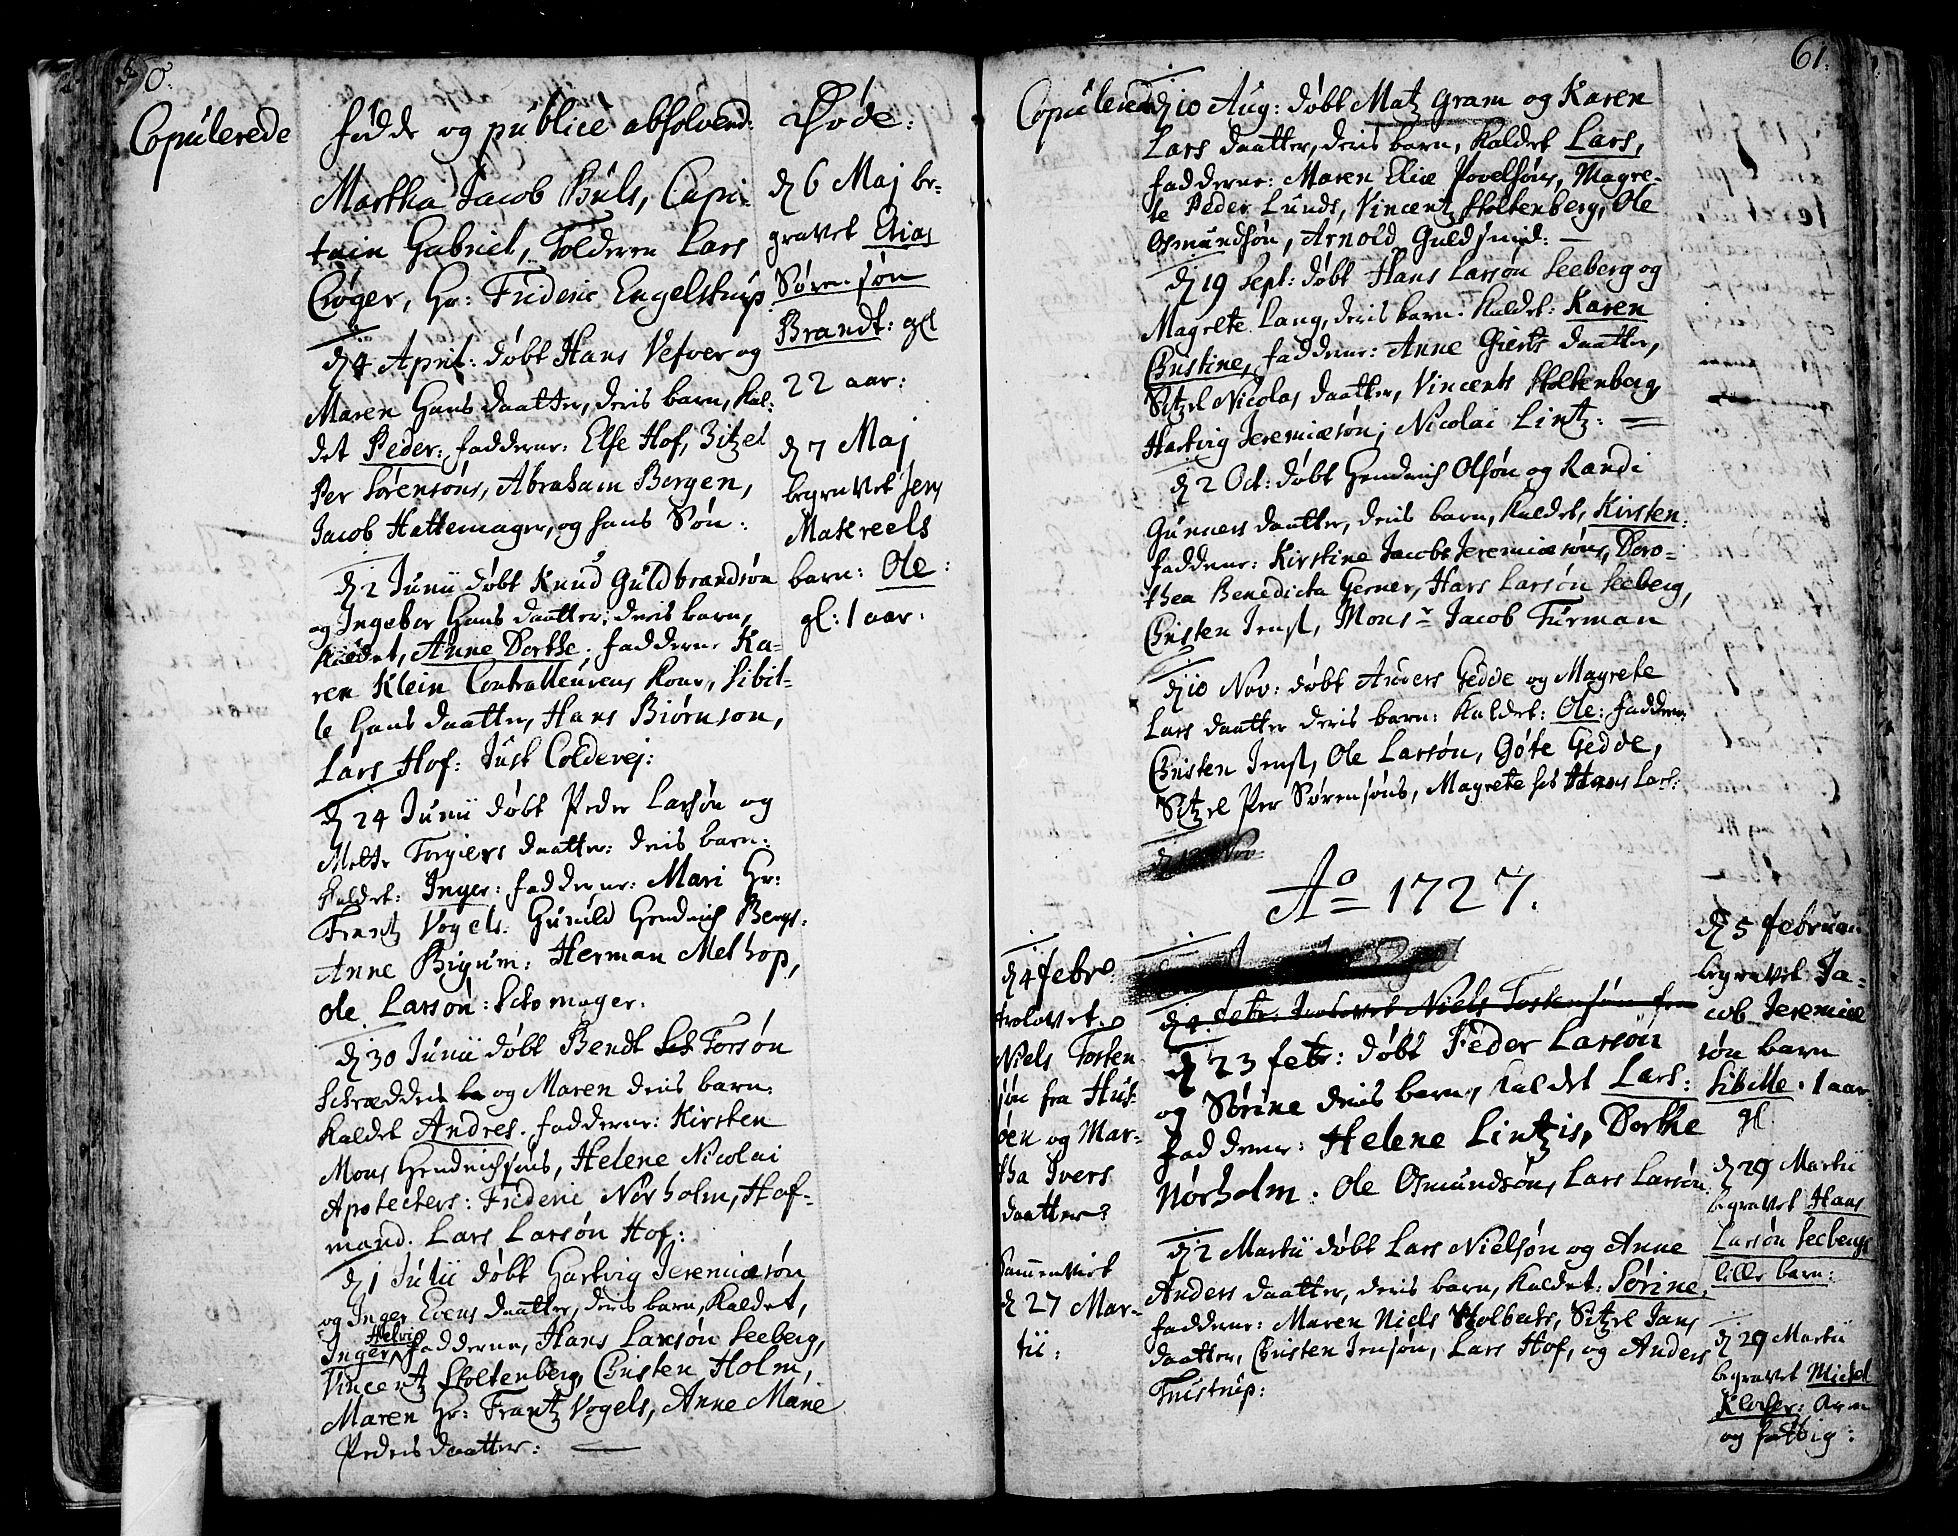 0.
Copulerede
fødde og publice absolverd:
Martha Jacob Buls, Capi-
tain Gabriel, Tolderen Lars
Crøger, Hr: Frideric Engelstrup
d 4 April: døbt Hans Vefver og
Maren Hans daatter, deris barn, kal-
det Peder: fadderne: Else Hof, Zitzel
Per Sørensøns, Abraham Borgen,
Jacob Hattemager, og hans Søn:
d 2 Junii døbt Knud Guldbrandsøn
og Ingebor Hans daatter; deris barn,
kaldet, Anne Dorthe. fadderne Ka-
ren Klein Contralleurens Kone, Sibil-
le Hans daatter, Hans Biørnson,
Lars Hof: Just Coldevej:
d 24 Junii døbt Peder Larsøn og
Mette Torgiers daatter: deris barn:
kaldet: Inger: fadderne: Mari Hr:
Frantz Vogels. Gunild Hendrich Bergs:
Anne Bigum: Herman Melhop,
Ole Larsøn: Schomager.
d 30 Junii døbt Bendt Sch Torsøn
Schrædderis ba og Maren deris barn:
kaldet Andres. fadderne: Kirsten
Mons Hendrichsøns, Helene Nicolai
Apoteckers: Frideric Norholm, Hof-
mand. Lars Larsøn Hof:
d 1 Julii døbt Hartvig Jeremiæsøn
og Inger Evens daatter, deris barn, kaldet,
Helvi
Inger, fadderne, Hans Larsøn Seeberg,
Vincentz Stoltenberg, Christen Holm,
Maren Hr: Frantz Vogels, Anne Marie
Peders daatter:
Døde:
d 6 Maj be-
gravet Elias
Sørensøn
Brandt: gl
22 aar:
d 7 Maj
begravet Jens
Makreels
barn: Ole:
gl: 1 aar:
61.
Copulered
d 10 Aug: døbt Matz Gram og Karen
Lars daatter, deris barn, kaldet Lars,
fadderne: Maren Eliæ Povelsøns, Magre-
te Peder Lunds, Vincentz Stoltenberg, Ole
Osmundsøn, Arnold Guldsmid:
d 19 Sept: døbt Hans Larsøn Seeberg og
Magrete Lang, deris barn: kaldet: Karen
Christine, fadderne: Anne Gierts daatter,
Sitzel Nicolas daatter, Vincents Stoltenberg,
Hartvig Jeremiæsøn; Nicolai Lintz:
d 2 Oct: døbt Hendrich Olsøn og Randi
Gunners daatter, deris barn, kaldet, Kirsten:
fadderne: Kirstine Jacobs Jeremiæsøns, Doro-
thea Benedicta Gerner, Hans Larsøn Seeberg,
Christen Jenst, Monsr Jacob Furman
d 10 Nov: døbt Anders Gedde og Magrete
Lars daatter deris barn: kaldet: Ole: fadderne
Christen Jenst, Ole Larsøn, Gøte Gedde,
Sitzel Per Sørensøns, Magrete hos Hans Lars:
Ao 1727.
d 4 Febr: trolovet Niels Tostensøn fra
d 23 febr: døbt Peder Larsøn
og Sørine deris barn, kaldet Lars:
Fadderne: Helene Lintzis, Dorthe
Norholm. Ole Osmundsøn, Lars Larsøn
d 2 Martii døbt Lars Nielsøn og Anne
Anders daatter, deris barn, kaldet: Sørine,
fadderne: Maren Niels Stolbents, Sitzel Jans
daatter, Christen Jensøn, Lars Hof, og Anders
Tristrup:
d 4 febr:
trolovet
Niels Tosten
søn fra Hus-
øen og Mar-
tha Ivers
daatter
Sammenviet
d 27 Mar-
tii:
d 5 februari
begravet Ja-
cob Jeremiæ
søn barn
Sibille. 1 aar
gl
d 29 Martii
begravet Hans
Larsøn Seebergs
lille barn:
d 29 Martii
begravet Michel
Klocker: Arm
og fattig: